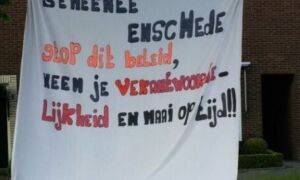 GEMEENTE
ENSCHEDE
STOP dit beleid,
NEEM je VERANTWOORDE-
Lijkheid EN MAAI OP tijd!!